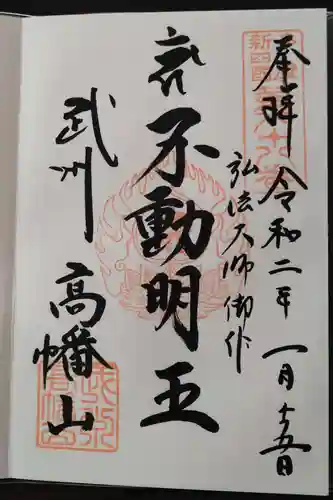 奉拝 令和二年 一月十五日
弘法大師御作
不動明王
武州 高幡山